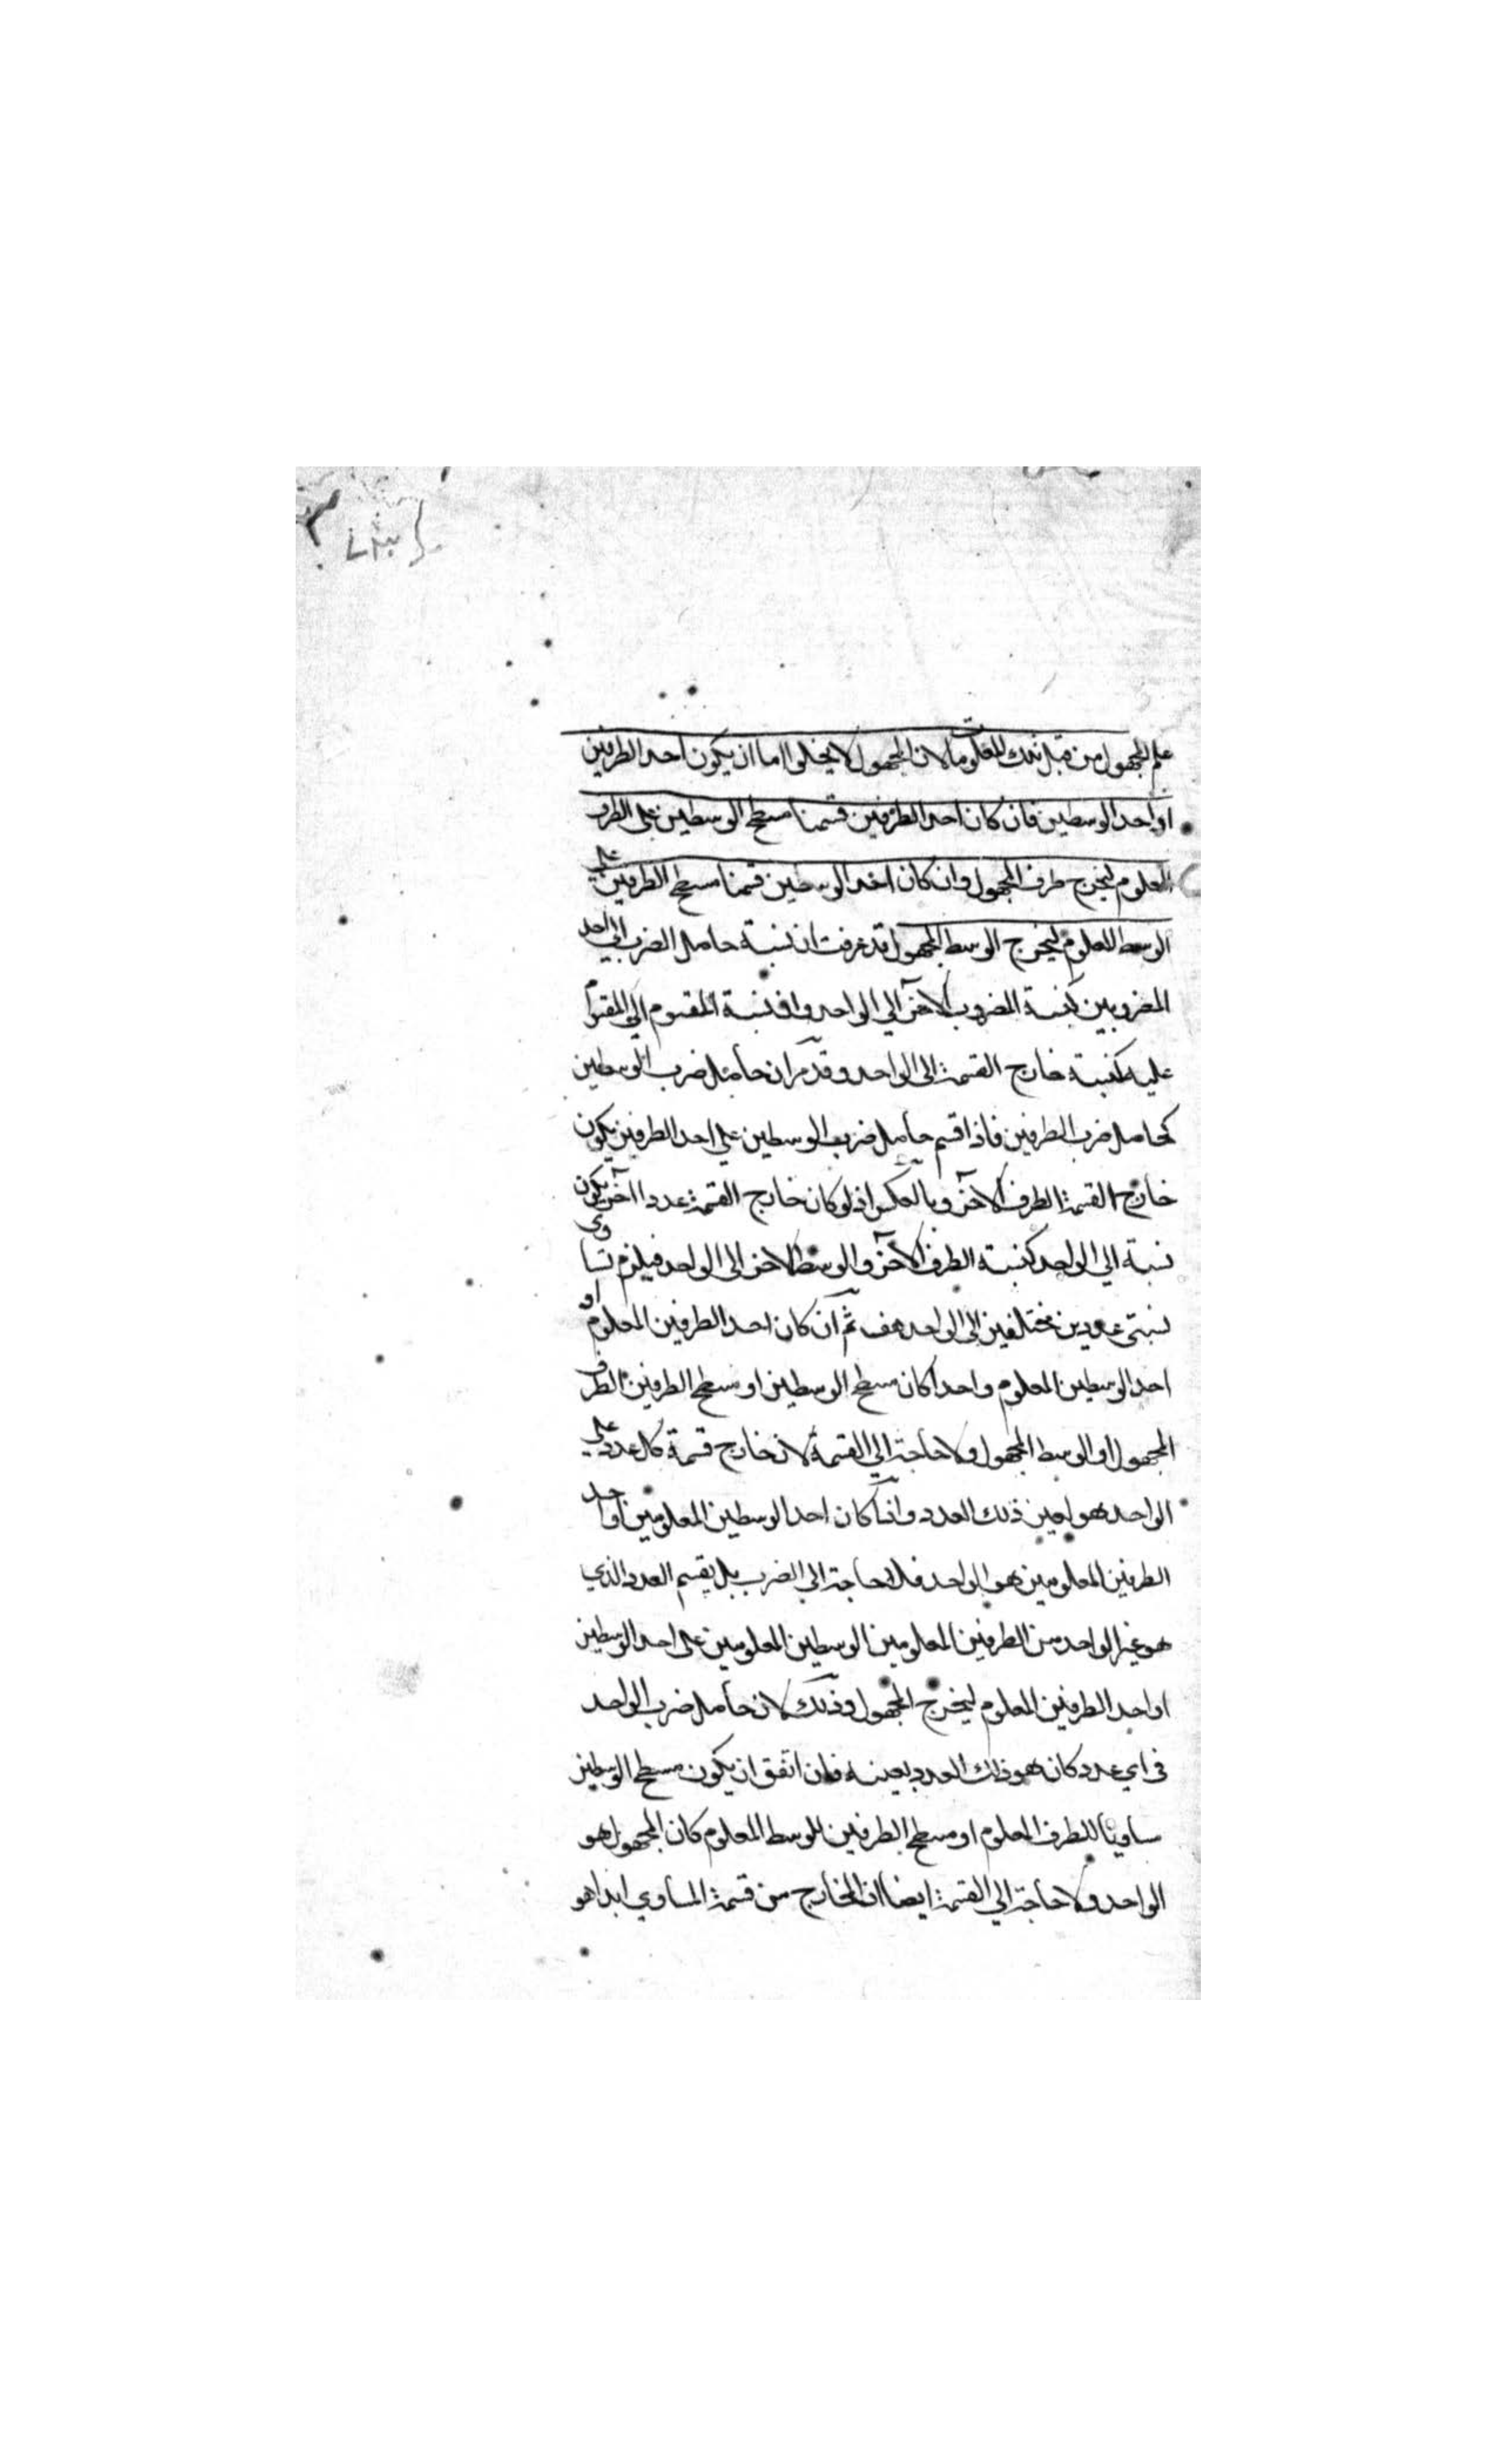 علم المجهول من قبل تلك المعلومات لان المجهول لا يخلوا اما ان يكون احد الطرفين
او احد الوسطين فان كان احد الطرفين قسمنا مسطح الوسطين على الطرف
المعلوم ليخرج طرف المجهول وان كان احد الوسطين قسمنا مسطح الطرفين على
الوسط المعلوم ليخرج الوسط المجهول قد عرفت ان نسبة حاصل الضرب الى احد
المضروبين كنسبة المضروب الآخر الى الواحد وان نسبة المقسوم الى المقسوم
عليه كنسبة خارج القسمة الى الواحد وقد مر ان حاصل ضرب الوسطين
كحاصل ضرب الطرفين فاذا قسم حاصل ضرب الوسطين على احد الطرفين يكون
خارج القسمة الطرف الآخر وبالعكس اذ لو كان خارج القسمة عددا آخر يكون
نسبة الى الواحد كنسبة الطرف الآخر والوسط الاخر الى الواحد فيلزم تساوى
نسبتى عددين مختلفين الى الواحد هف ثم ان كان احد الطرفين المعلوم او
احد الوسطين المعلوم واحدا كان مسطح الوسطين او مسطح الطرفين الطرف
المجهول او الوسط المجهول ولا حاجة الى القسمة لان خارج قسمة كل عدد على
الواحد هو بعين ذلك العدد وان كان احد الوسطين المعلومين او احد
الطرفين المعلومين هو الواحد فلا حاجة الى الضرب بل يقسم العدد الذي
هو غير الواحد من الطرفين المعلومين الوسطين المعلومين على احد الوسطين
او احد الطرفين المعلوم ليخرج المجهول وذلك لان حاصل ضرب الواحد
فى اي عدد كان هو ذلك العدد بعينه فان اتفق ان يكون مسطح الوسطين
مساويا للطرف المعلوم او مسطح الطرفين للوسط المعلوم كان المجهول هو
الواحد ولا حاجة الى القسمة ايضا اذ الخارج من قسمة المساوي ابدا هو